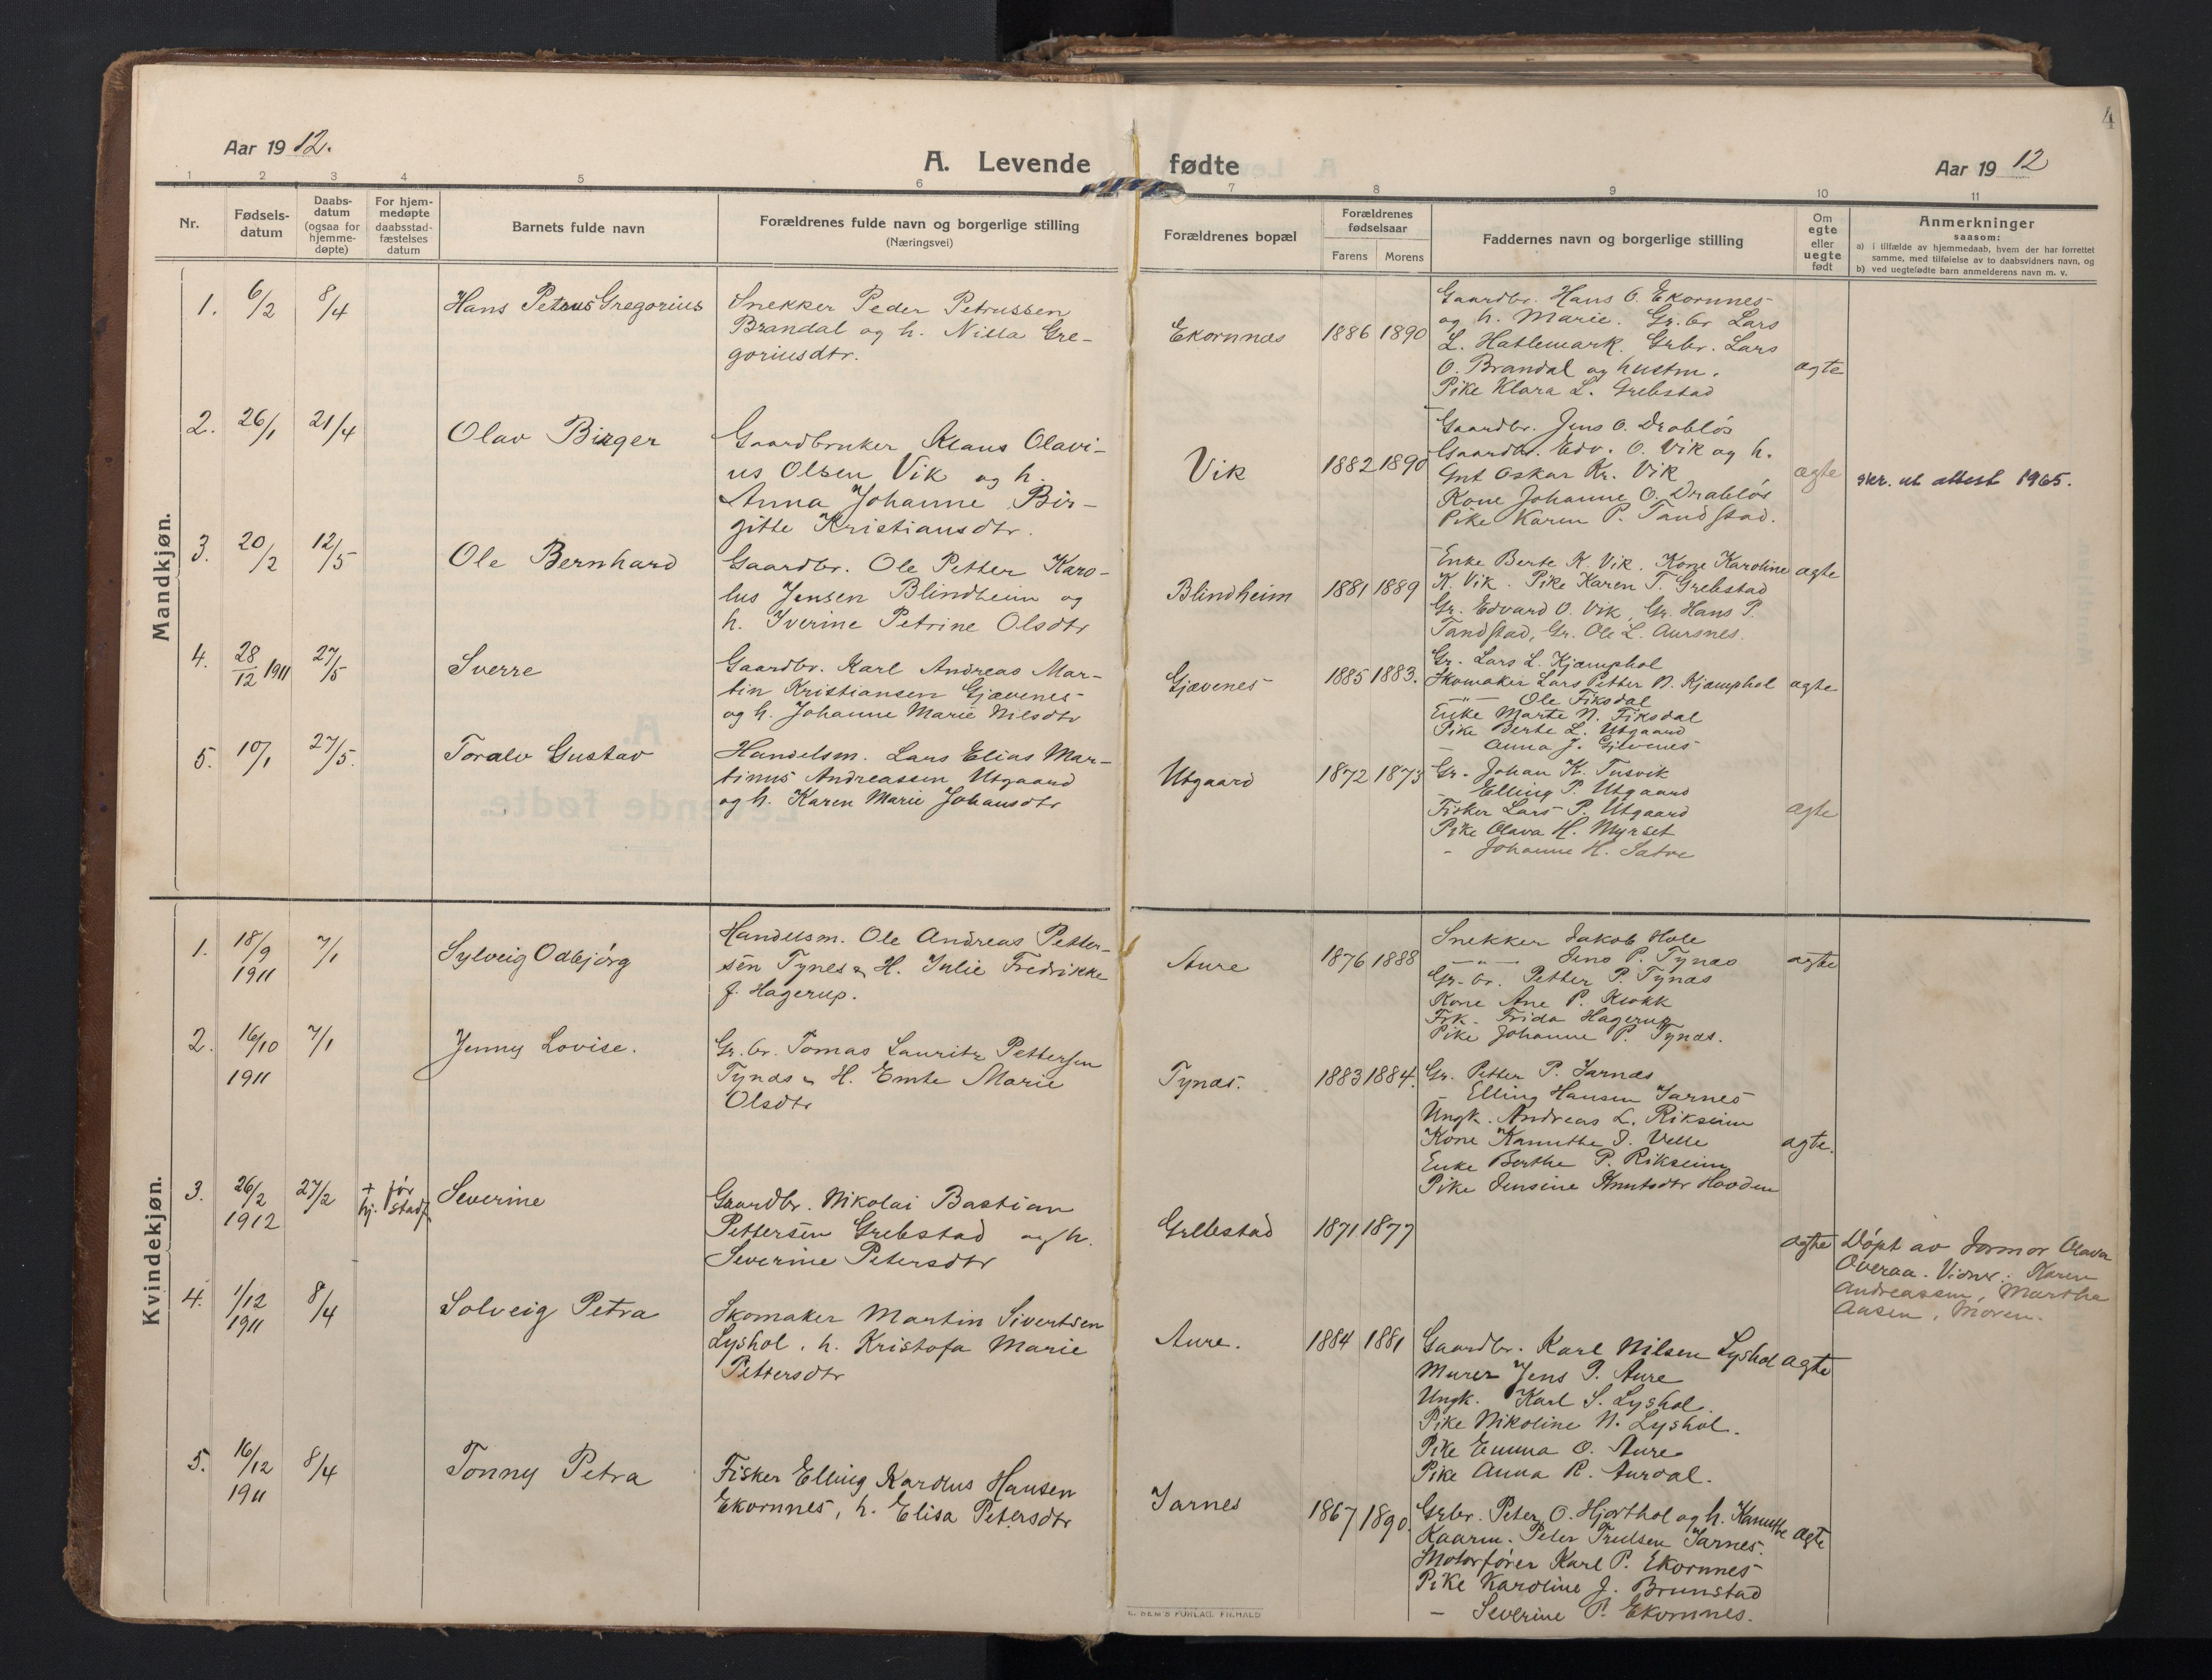 4
Aar 1912.
A. Levende fødte
Aar 1912
1 2 3 4 5 6 7 8 9 10 11
Nr.
Fødsels-
datum
Daabs-
datum
(ogsaa for
hjemme-
døpte)
For hjem-
medøpte
daabsstad-
fæstelses
datum
Barnets fulde navn
Forældrenes fulde navn og borgerlige stilling
(Næringsvei)
Forældrenes bopæl
Forældrenes
fødselsaar
Farens Morens
Faddernes navn og borgerlige stilling
Om
egte
eller
uegte
født
Anmerkninger
saasom:
a) i tilfælde av hjemmedaab, hvem der har forrettet
samme, med tilføielse av to daabsvidners navn, og
b) ved uegtefødte barn anmelderens navn m. v.
Mandkjøn.
1. 6/2 8/4 Hans Petrus Gregorius
Snekker Peder Petrussen
Brandal og h. Nilla Gre-
goriusdtr.
Ekornnes 1886 1890
Gaardbr. Hans O. Ekornnes
og h. Marie. Gr.br Lars
L. Hatlemark. Grbr. Lars
O. Brandal og hustru.
Pike Klara L. Grebstad
ægte
2. 26/1 21/4 Olav Birger
Gaardbruker Klaus Olavi-
us Olsen Vik og h.
Anna Johanne Bir-
gitte Kristiansdtr.
Vik 1882 1890
Gaardbr. Jens O. Drabløs
Gaardbr. Edv. O. Vik og h.
Gut Oskar Kr. Vik
Kone Johanne O. Drabløs
Pike Karen P. Tandstad.
ægte
skr. ut attest 1965.
3. 20/2 12/5 Ole Bernhard
Gaardbr. Ole Petter Karo-
lus Jensen Blindheim og
h. Iverine Petrine Olsdtr
Blindheim 1881 1889
Enke Berte K. Vik. Kone Karoline
K. Vik. Pike Karen T. Grebstad
Gr. Edvard O. Vik, Gr. Hans P.
Tandstad, Gr. Ole L. Aursnes.
ægte
4. 28/12 1911 27/5 Sverre
Gaardbr. Karl Andreas Mar-
tin Kristiansen Gjævenes
og h. Johanne Marie Nilsdtr
Gjævenes 1885 1883.
Gr. Lars L. Kjæmphol
Skomaker Lars Petter N. Kjæmphol
—"— Ole Fiksdal
Enke Marte N. Fiksdal
Pike Berte L. Utgaard
— Anna J. Gjevenes
ægte
5. 10/1 27/5. Toralv Gustav
Handelsm. Lars Elias Mar-
tinus Andreassen Utgaard
og h. Karen Marie Johansdtr
Utgaard 1872 1873
Gr. Johan K. Tusvik
— Elling P. Utgaard
Fisker Lars P. Utgaard
Pike Olava H. Myrset
— Johanne H. Sætre
ægte
Kvindekjøn.
1. 18/9 1911 7/1 Sylveig Odbjørg
Handelsm. Ole Andreas Petter-
sen Tynes & H. Julie Fredrikke
J. Hagerup.
Aure 1876 1888
Snekker Jakob Hole
—"— Jens P. Tynes
Gr.br. Petter P. Tynes
Kone Ane P. Krokk
Frk. Frida Hagerup
Pike Johanne P. Tynes.
ægte
2. 16/10 1911 7/1 Jenny Lovise.
Gr.br. Tomas Lauritz Pettersen
Tynes & H. Emte Marie
Olsdtr
Tynes. 1883 1884.
Gr. Petter P. Jarnes
— Elling Hansen Jarnes
Ungk. Andreas L. Riksem
Kone Kanutte J. Velle
Enke Berthe P. Riksem
Pike Jensine Knutsdtr Hovden
ægte.
3. 26/2 1912 27/2 + før hj. stadf. Severine
Gaardbr. Nikolai Bastian
Pettersen Grebstad og h.
Severine Petersdtr
Grebstad 1871 1877
ægte
Døpt av Jormor Olava
Overaa. Vidner: Karen
Andreassen, Martha
Ansen, Moren.
4. 1/12 1911 8/4 Solveig Petra
Skomaker Martin Sivertsen
Lyshol. h. Kristofa Marie
Pettersdtr
Aure. 1884 1881
Gaardbr. Karl Nilsen Lyshol
Murer Jens P. Aure
Ungk. Karl S. Lyshol.
Pike Nikoline N. Lyshol.
Pike Emma O. Aure
Pike Anna R. Aurdal.
ægte
5. 16/12 1911 8/4 Tonny Petra
Fisker Elling Karolus Hansen
Ekornnes, h. Elisa Petersdtr
Jarnes 1867 1890.
Grbr. Peter O. Hjorthol og h. Kanutte
Kaarm. Peter Trulsen Jarnes.
Motorfører Karl P. Ekornnes
Pike Karoline J. Brunstad
— Severine P. Ekornnes.
ægte
E. SEM'S FORLAG, FR.HALD